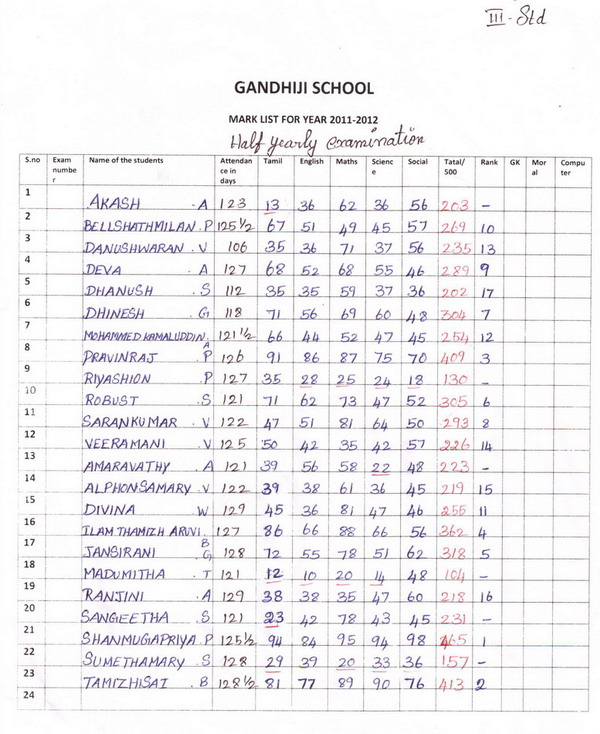 III - Std
GANDHIJI SCHOOL
MARK LIST FOR YEAR 2011-2012
Half Yearly Examination
S.no Exam number Name of the students Attendance in days Tamil English Maths Science Social Tatal/500 Rank GK Moral Computer
1 AKASH . A 123 13 36 62 36 56 203 -
2 BELLSHATHMILAN . P 125 1/2 67 51 49 45 57 269 10
3 DANUSHWARAN . V 106 35 36 71 37 56 235 13
4 DEVA . A 127 68 52 68 55 46 289 9
5 DHANUSH . S 112 35 35 59 37 36 202 17
6 DHINESH . G 118 71 56 69 60 48 304 7
7 MOHAMMED KAMALUDDIN . A 121 1/2 66 44 52 47 45 254 12
8 PRAVINRAJ . P 126 91 86 87 75 70 409 3
9 RIYASHION . P 127 35 28 25 24 18 130 -
10 ROBUST . S 121 71 62 73 47 52 305 6
11 SARANKUMAR . V 122 47 51 81 64 50 293 8
12 VEERAMANI . V 125 50 42 35 42 57 226 14
13 AMARAVATHY . A 121 39 56 58 22 48 223 -
14 ALPHONSAMARY . V 122 39 38 61 36 45 219 15
15 DIVINA . W 129 45 36 81 47 46 255 11
16 ILAM THAMIZH ARUVI . B 127 86 66 88 66 56 362 4
17 JANSIRANI . G 128 72 55 78 51 62 318 5
18 MADUMITHA . T 121 12 10 20 14 48 104 -
19 RANJINI . A 129 38 38 35 47 60 218 16
20 SANGEETHA . S 121 23 42 78 43 45 231 -
21 SHANMUGAPRIYA . P 125 1/2 94 84 95 94 98 465 1
22 SUMETHAMARY . S 128 29 39 20 33 36 157 -
23 TAMIZHISAI . B 128 1/2 81 77 89 90 76 413 2
24